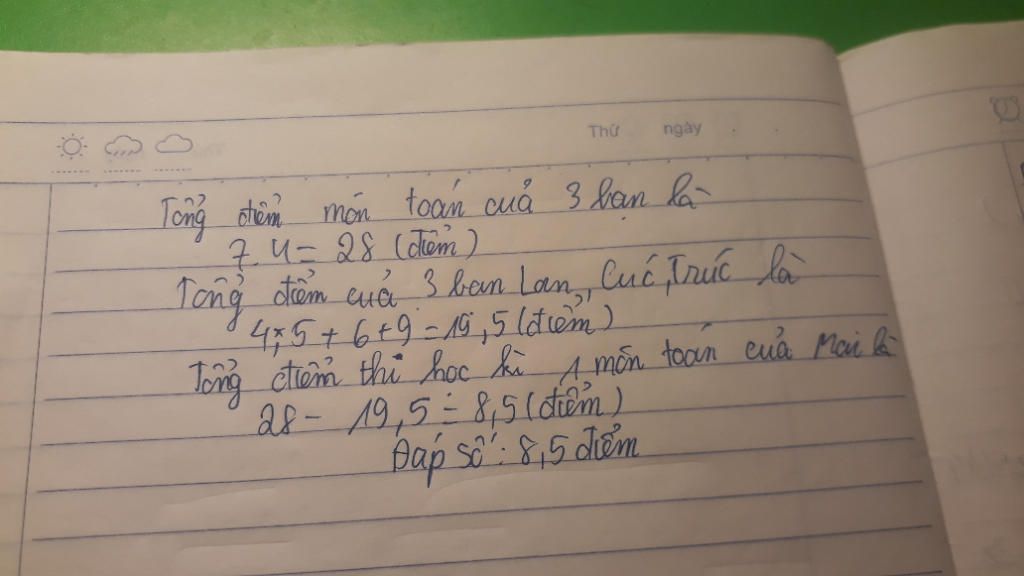 Thứ ngày
Tổng điểm môn toán của 3 bạn là
7.4 = 28 (điểm)
Tổng điểm của 3 bạn Lan, Cúc, Trúc là
4,5 + 6 + 9 = 19,5 (điểm)
Tổng điểm thi học kì 1 môn toán của Mai là
28 - 19,5 = 8,5 (điểm)
Đáp số : 8,5 điểm